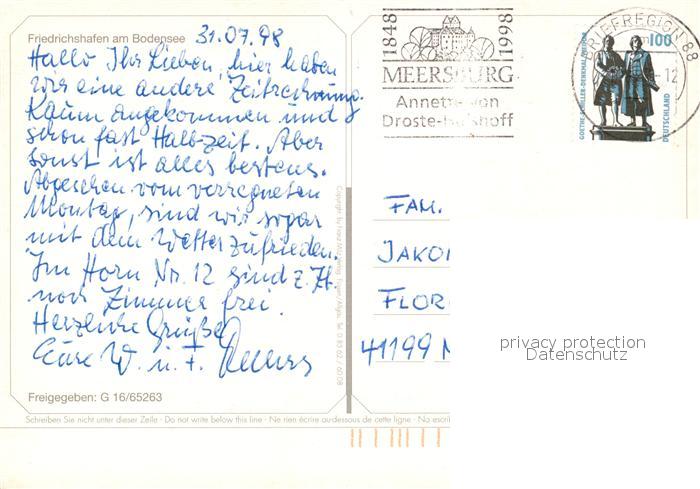 Friedrichshafen am Bodensee 31.07.98
Hallo Ihr Lieben, hier haben
wir eine andere Zeitrechnung.
Kaum angekommen und
schon fast Halb-zeit. Aber
sonst ist alles bestens.
Abgesehen vom verregneten
Montag, sind wir sogar
mit dem Wetter zufrieden.
Im Horn Nr. 12 sind z.Zt.
noch Zimmer frei.
Herzliche Grüße
Eure W. u. F.
Freigegeben: G 16/65263
Schreiben Sie nicht unter dieser Zeile · Do not write below this line · Ne rien écrire au-dessous de cette ligne · No escri
1848
1998
MEERSBURG
Annette von
Droste-Hülshoff
BRIEFREGION 88
-12
100
GOETHE-SCHILLER-DENKMAL WEIMAR
DEUTSCHLAND
FAM.
JAKO
FLOR
41199 M
privacy protection
Datenschutz